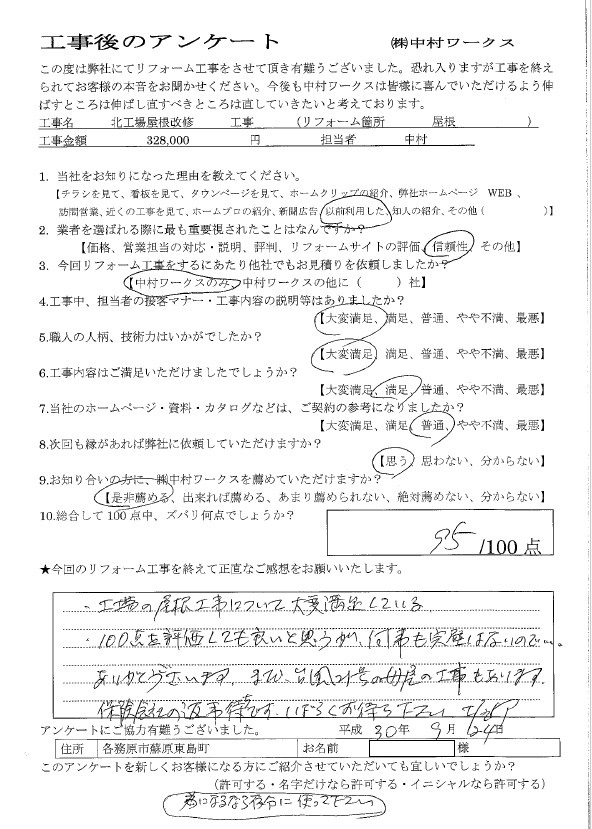 工事後のアンケート　㈱中村ワークス
この度は弊社にてリフォーム工事をさせて頂き有難うございました。恐れ入りますが工事を終え
られてお客様の本音をお聞かせください。今後も中村ワークスは皆様に喜んでいただけるよう伸
ばすところは伸ばし直すべきところは直していきたいと考えております。
工事名　北工場屋根改修　工事　（リフォーム箇所　屋根　）
工事金額　328,000　円　担当者　中村
1. 当社をお知りになった理由を教えてください。
【チラシを見て、看板を見て、タウンページを見て、ホームクリップの紹介、弊社ホームページ　WEB 、
訪問営業、近くの工事を見て、ホームプロの紹介、新聞広告、以前利用した、知人の紹介、その他（　）】
2. 業者を選ばれる際に最も重要視されたことはなんですか？
【価格、営業担当の対応・説明、評判、リフォームサイトの評価、信頼性、その他】
3. 今回リフォーム工事をするにあたり他社でもお見積りを依頼しましたか？
【中村ワークスのみ、中村ワークスの他に（　）社】
4.工事中、担当者の接客マナー・工事内容の説明等はありましたか？
【大変満足、満足、普通、やや不満、最悪】
5.職人の人柄、技術力はいかがでしたか？
【大変満足、満足、普通、やや不満、最悪】
6.工事内容はご満足いただけましたでしょうか？
【大変満足、満足、普通、やや不満、最悪】
7.当社のホームページ・資料・カタログなどは、ご契約の参考になりましたか？
【大変満足、満足、普通、やや不満、最悪】
8.次回も縁があれば弊社に依頼していただけますか？
【思う、思わない、分からない】
9.お知り合いの方に、㈱中村ワークスを薦めていただけますか？
【是非薦める、出来れば薦める、あまり薦められない、絶対薦めない、分からない】
10.総合して100点中、ズバリ何点でしょうか？
95 /100 点
★今回のリフォーム工事を終えて正直なご感想をお願いいたします。
・工場の屋根工事について大変満足している
・100点と評価しても良いと思うが、何事も完璧はないので…。
ありがとうございます。まだ、台風21号の母屋の工事もあります。
保険会社の返事待ちです。しばらくお待ち下さい
アンケートにご協力有難うございました。　平成 30 年 9 月 24 日
住所　各務原市蘇原東島町　お名前　様
このアンケートを新しくお客様になる方にご紹介させていただいても宜しいでしょうか？
（許可する・名字だけなら許可する・イニシャルなら許可する）
為になるなら存分に使って下さい